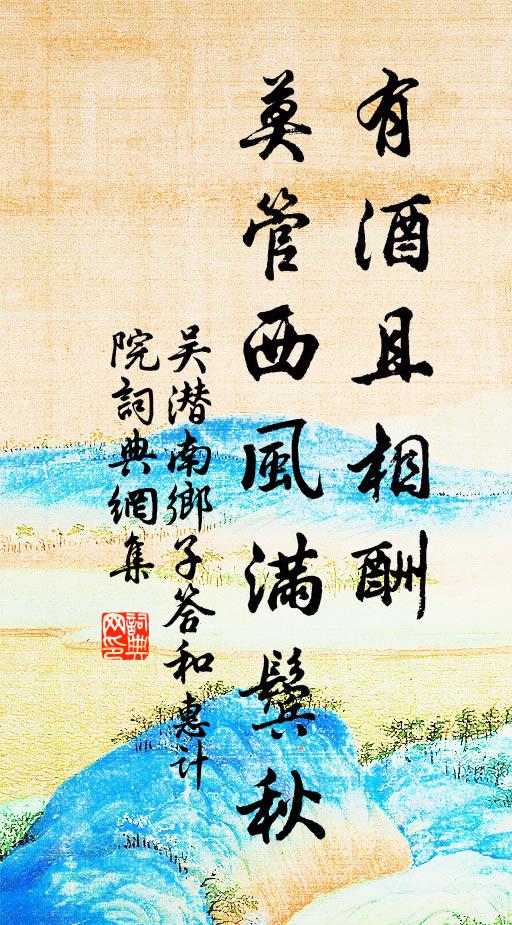 有酒且相酬
莫管西風滿鬓秋
吴潜南鄉子答和惠计
院詞典網集
詞典
网印